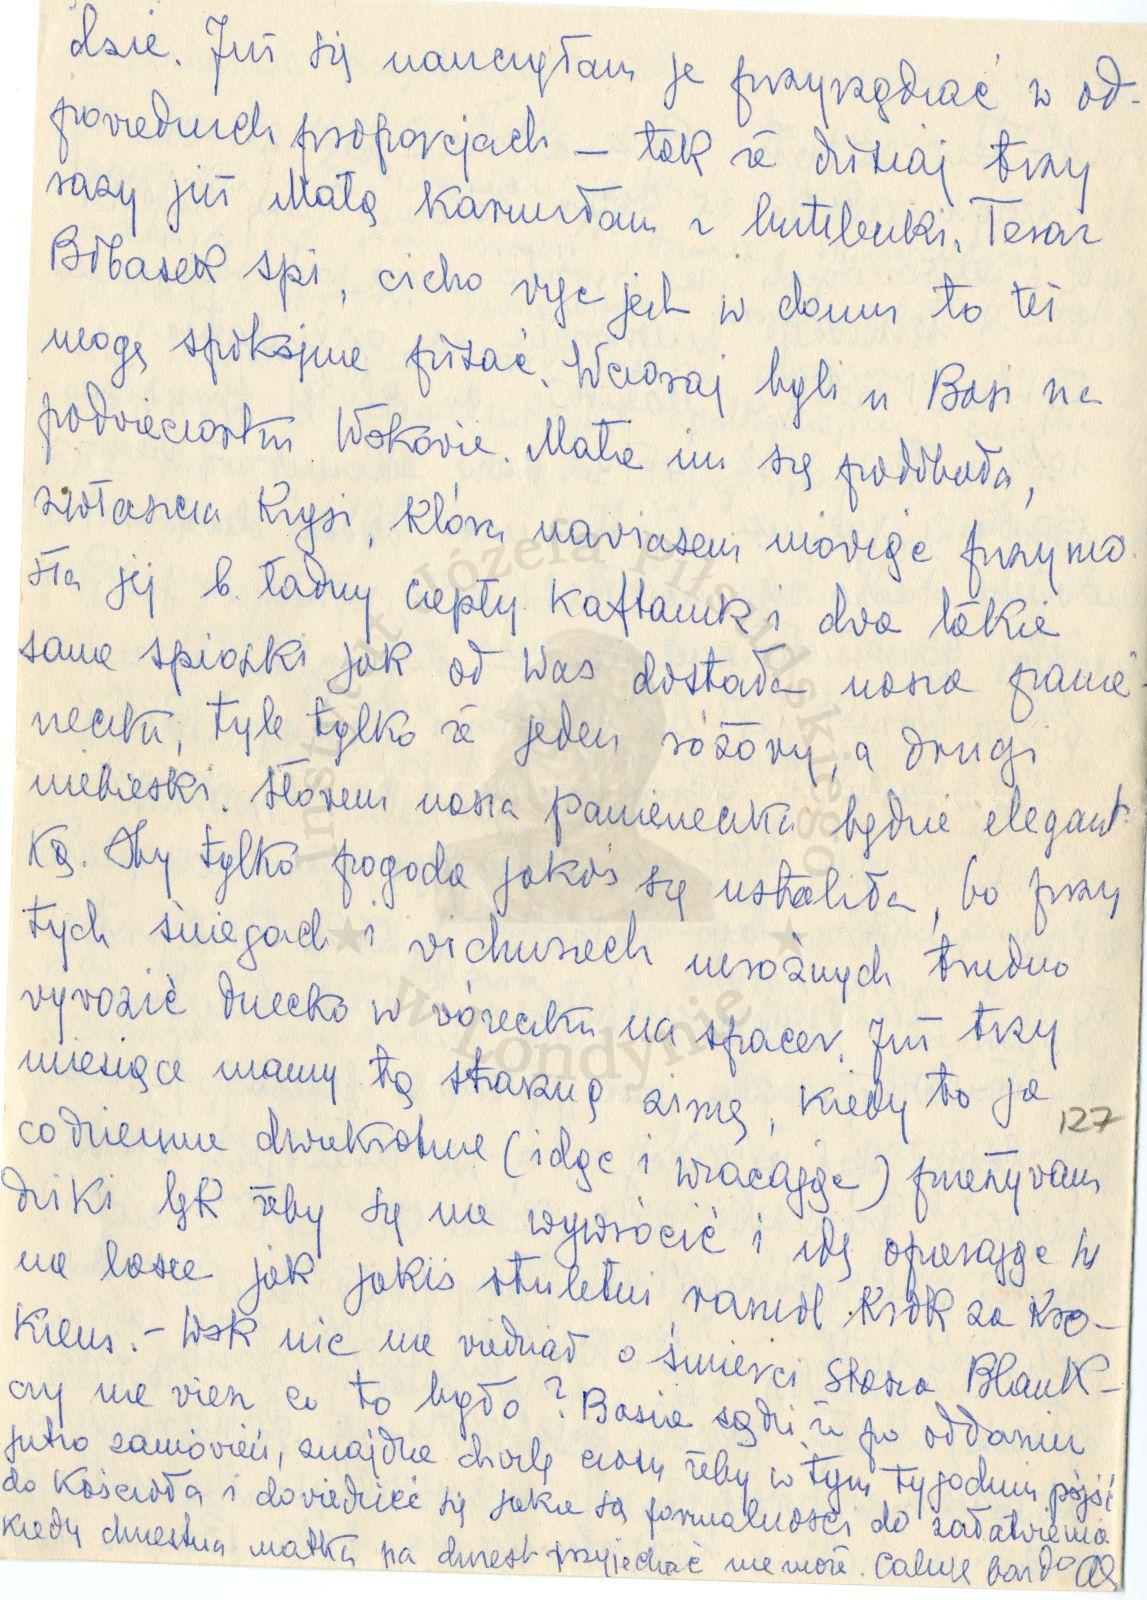 dzie. Już się nauczyłam je przyrządzać w od-
powiednich proporcjach — tak że dzisiaj trzy
razy już Małą karmiłam z buteleczki. Teraz
Bobasek śpi, cicho więc jest w domu to też
mogę spokojnie pisać. Wczoraj byli u Basi na
podwieczorku Wokowie. Mała im się podobała,
zwłaszcza Krysi, która nawiasem mówiąc przynio-
sła jej b. ładny ciepły kaftanik i dwa takie
same śpioszki jak od Was dostała nasza panie-
neczka, tyle tylko że jeden różowy, a drugi
niebieski. Słowem nasza panieneczka będzie elegant-
ką. Aby tylko pogoda jakoś się ustaliła, bo przy
tych śniegach i wichurach mroźnych trudno
wywozić dziecko w wózeczku na spacer. Już trzy
miesiące mamy tą straszną zimę, kiedy to ja
127
codziennie dwukrotnie (idąc i wracając) przeżywam
dziki lęk żeby się nie wywrócić i idę opierając się
na lasce jak jakiś stuletni ramol krok za kro-
kiem. — Wok nic nie wiedział o śmierci Stasia Blank —
czy nie wiesz co to było? Basia sądzi że po oddaniu
jutro zamówień, znajdzie chwilę czasu żeby w tym tygodniu pójść
do Kościoła i dowiedzieć się jakie są formalności do załatwienia
kiedy chrzestna matka na chrzest przyjechać nie może. Całuję bardzo
Instytut Józefa Piłsudskiego
w Londynie